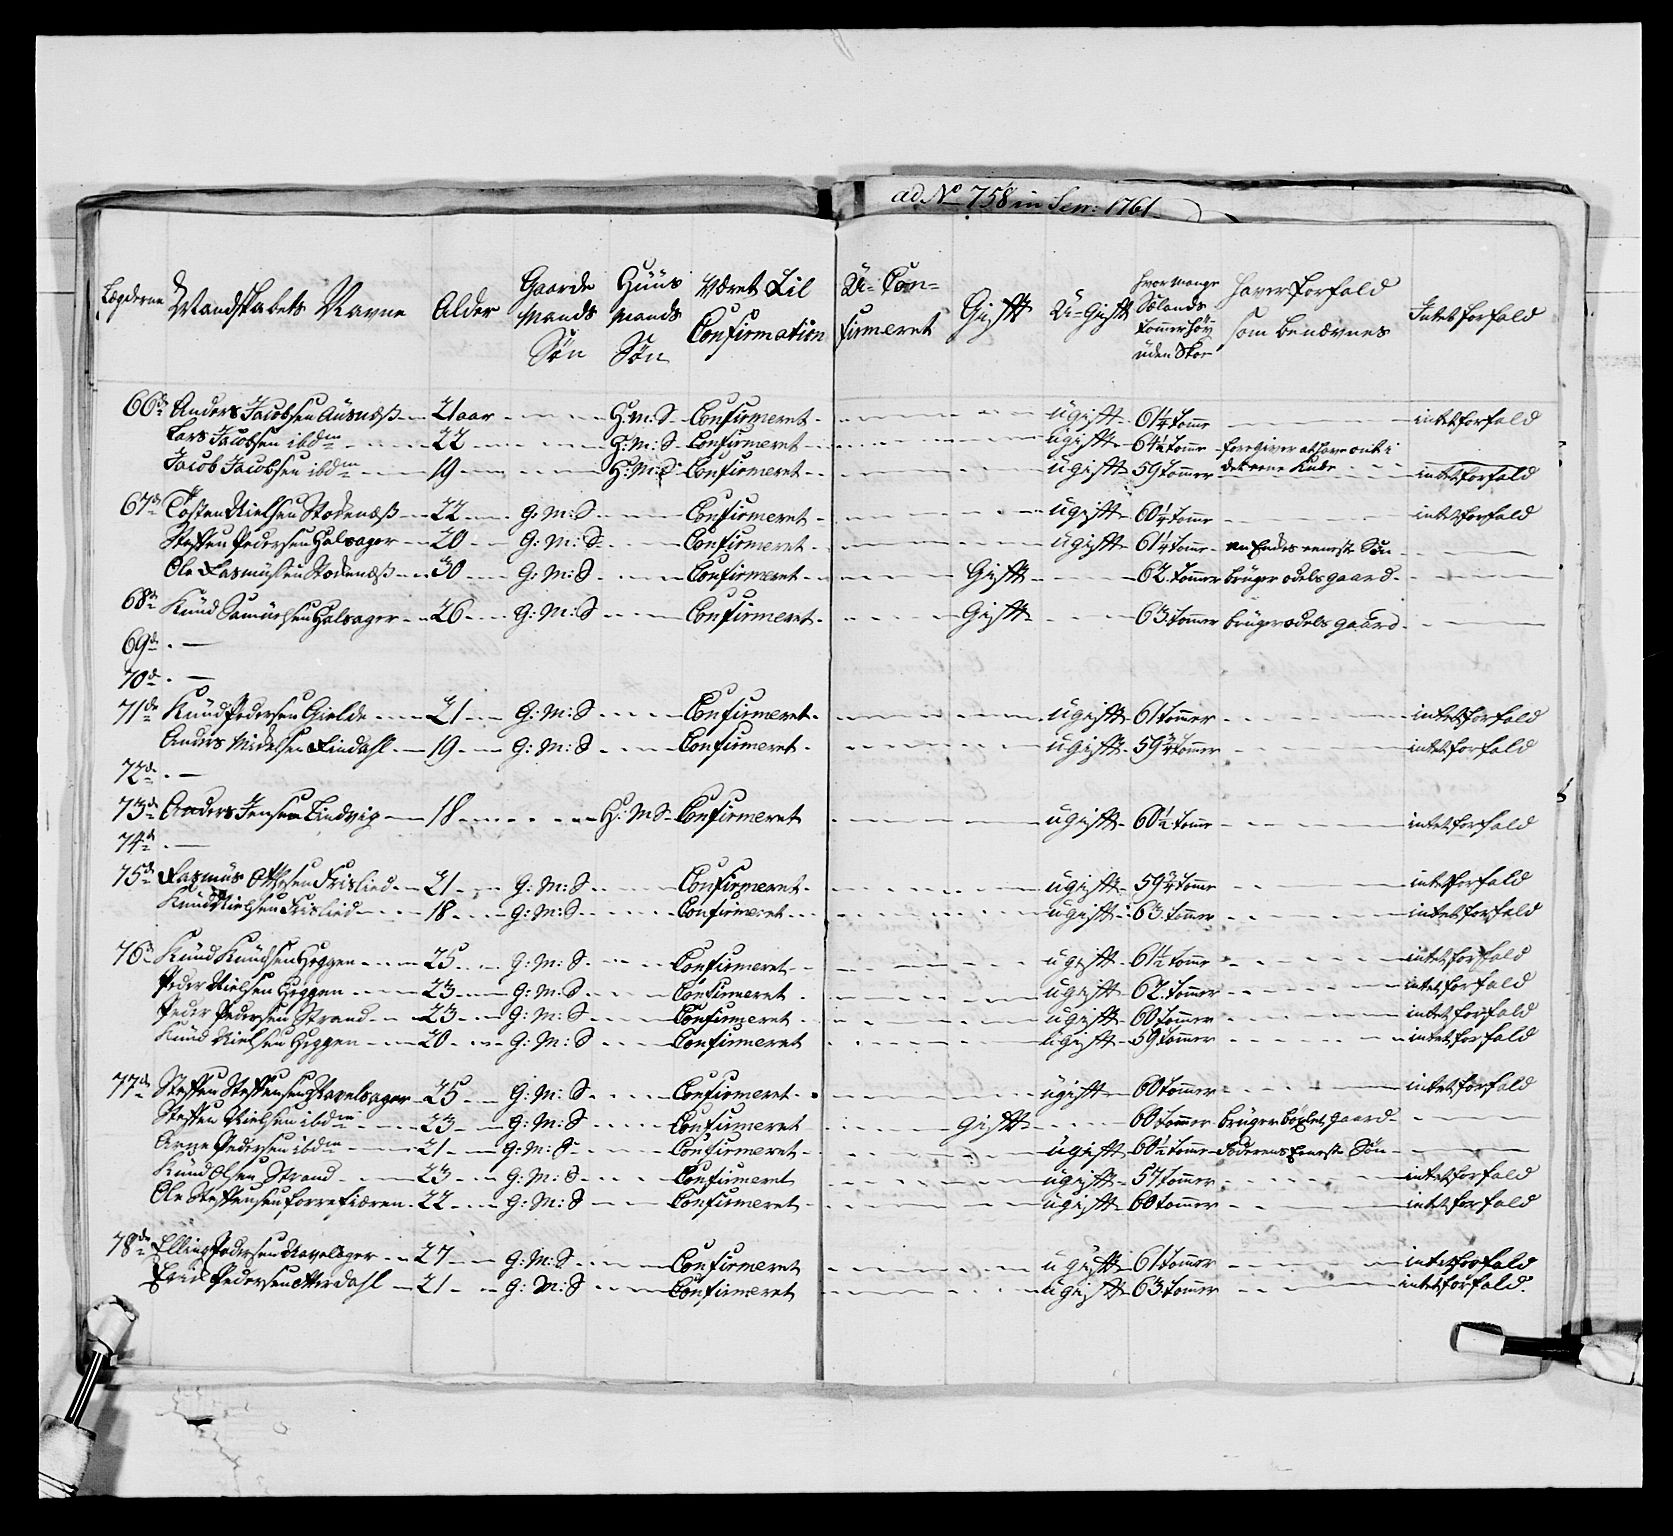 ad No 758 in Sen: 1761
Lægderne Mandskabets Navne Alder Gaarde Mands Søn Huus Mands Søn Været Til Confirmation U-Confirmeret Gift U-Gift hvor mange Sælands Tommer høy uden Skoe haver Forfald som benævnes Intet forfald
66de Anders Jacobsen Ausnæss 21 aar H:M:S Confirmeret ugift 61¼ Tomme intet forfald
Lars Jacobsen ibdm 22 H:M:S Confirmeret ugift 64½ Tomme foregiver at have ont i
Jacob Jacobsen ibdm 19 H:M:S Confirmeret ugift 59 Tommer det eene Knæe intet forfald
67de Nielsen Stodenæss 22 G:M:S Confirmeret ugift 60¼ Tomme intet forfald
Steffen Pedersen Halsager 20 G:M:S Confirmeret ugift 61¼ Tomme en Enkes eeneste Søn
Ole Rasmusen Stodenæss 30 G:M:S Confirmeret Gift 62 Tommer bruger odels gaard
68de Knud Samuelsen Halsager 26 G:M:S Confirmeret Gift 63 Tommer bruger odels gaard
69de
70de
71de Knud Pedersen Gielde 21 G:M:S Confirmeret ugift 61 Tommer intet forfald
Anders Findahl 19 G:M:S Confirmeret ugift 59¾ Tommer intet forfald
72de
73de Anders Jensen Lindvig 18 H:M:S Confirmeret ugift 60½ Tomme intet forfald
74de
75de Rasmus Frislied 21 G:M:S Confirmeret ugift 59¾ Tomme intet forfald
Knud Nielsen Frislied 18 G:M:S Confirmeret ugift 63 Tommer intet forfald
76de Knud Knudsen Heggen 25 G:M:S Confirmeret ugift 61½ Tomme intet forfald
Peder Nielsen Heggen 23 G:M:S Confirmeret ugift 62 Tommer intet forfald
Peder Pedersen Strand 23 G:M:S Confirmeret ugift 60 Tommer intet forfald
Knud Nielsen Heggen 20 G:M:S Confirmeret ugift 59 Tommer intet forfald
77de Steffen Steffensen 25 G:M:S Confirmeret ugift 60 Tommer intet forfald
Steffen Nielsen ibdm 23 G:M:S Confirmeret Gift 60 Tommer bruger böxlet gaard
Arne Pedersen ibdm 21 G:M:S Confirmeret ugift 60½ Tomme Faderens Eeneste Søn
Knud Olsen Strand 23 G:M:S Confirmeret ugift 57 Tommer intet forfald
Ole Steffensen 22 G:M:S Confirmeret ugift 60 Tommer intet forfald
78de Elling Pedersen 27 G:M:S Confirmeret ugift 61 Tommer intet forfald
Pedersen 21 G:M:S Confirmeret ugift 63 Tommer intet forfald